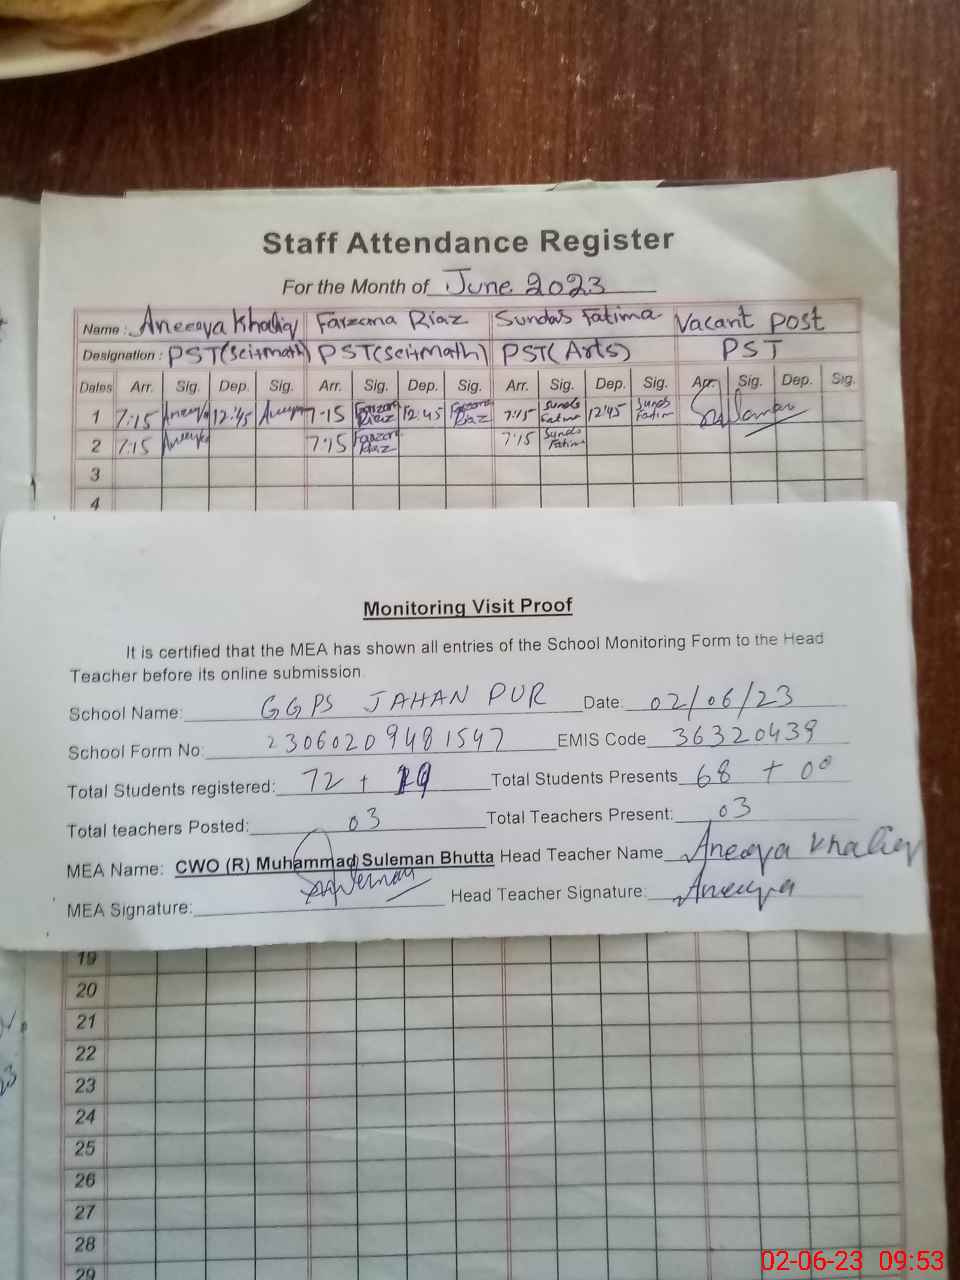 Staff Attendance Register
For the Month of June 2023
Name : Aneeqa Khaliq Farzana Riaz Sundas Fatima Vacant Post
Designation : PST(Sci+math) PST(Sci+Math) PST(Arts) PST
Dates Arr. Sig. Dep. Sig. Arr. Sig. Dep. Sig. Arr. Sig. Dep. Sig. Arr. Sig. Dep. Sig.
1 7:15 Aneeqa 12:45 Aneeqa 7:15 Farzana Riaz 12:45 Farzana Riaz 7:15 Sundas Fatima 12:45 Sundas Fatima
2 7:15 Aneeqa 7:15 Farzana Riaz 7:15 Sundas Fatima
3
4
Monitoring Visit Proof
It is certified that the MEA has shown all entries of the School Monitoring Form to the Head
Teacher before its online submission
School Name: GGPS JAHAN PUR Date: 02/06/23
School Form No: 23060209481547 EMIS Code 36320439
Total Students registered: 72 + Total Students Presents 68 + 00
Total teachers Posted: 03 Total Teachers Present: 03
MEA Name: CWO (R) Muhammad Suleman Bhutta Head Teacher Name Aneeqa Khaliq
MEA Signature: Head Teacher Signature: Aneeqa
19
20
21
22
23
24
25
26
27
28
29
02-06-23 09:53